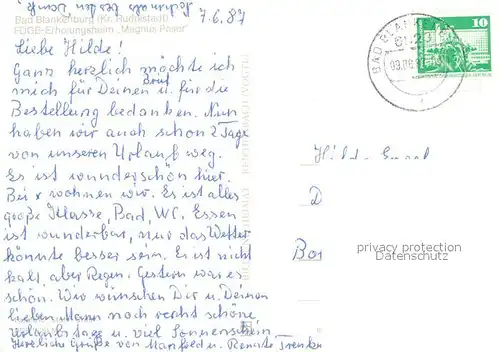 Nochmals besten Dank
7.6.87
Bad Blankenburg (Kr. Rudolstadt)
FDGB-Erholungsheim „Magnus Poser"
Liebe Hilde!
Ganz herzlich möchte ich
mich für Deinen Brief u. für die
Bestellung bedanken. Nun
haben wir auch schon 2 Tage
von unseren Urlaub weg.
Es ist wunderschön hier.
Bei x wohnen wir. Es ist alles
große Klasse, Bad, WC. Essen
ist wunderbar, nur das Wetter
könnte besser sein. Es ist nicht
kalt aber Regen. Gestern war es
schön. Wir wünschen Dir u. Deinen
lieben Mann noch recht schöne
Urlaubstage u. viel Sonnenschein
Herzliche Grüße von Manfred u. Renate
BAD BLANKENBURG
10
D
privacy protection
Datenschutz